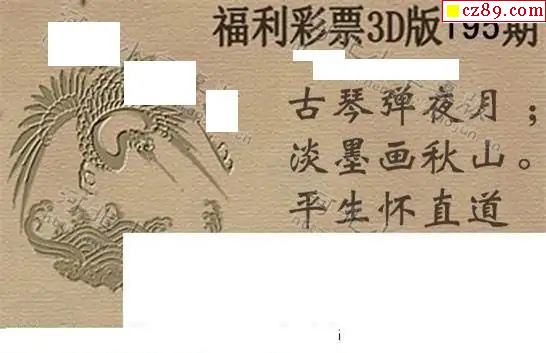 cz89.com
福利彩票3D版195期
古琴弹夜月；
淡墨画秋山。
平生怀直道
i